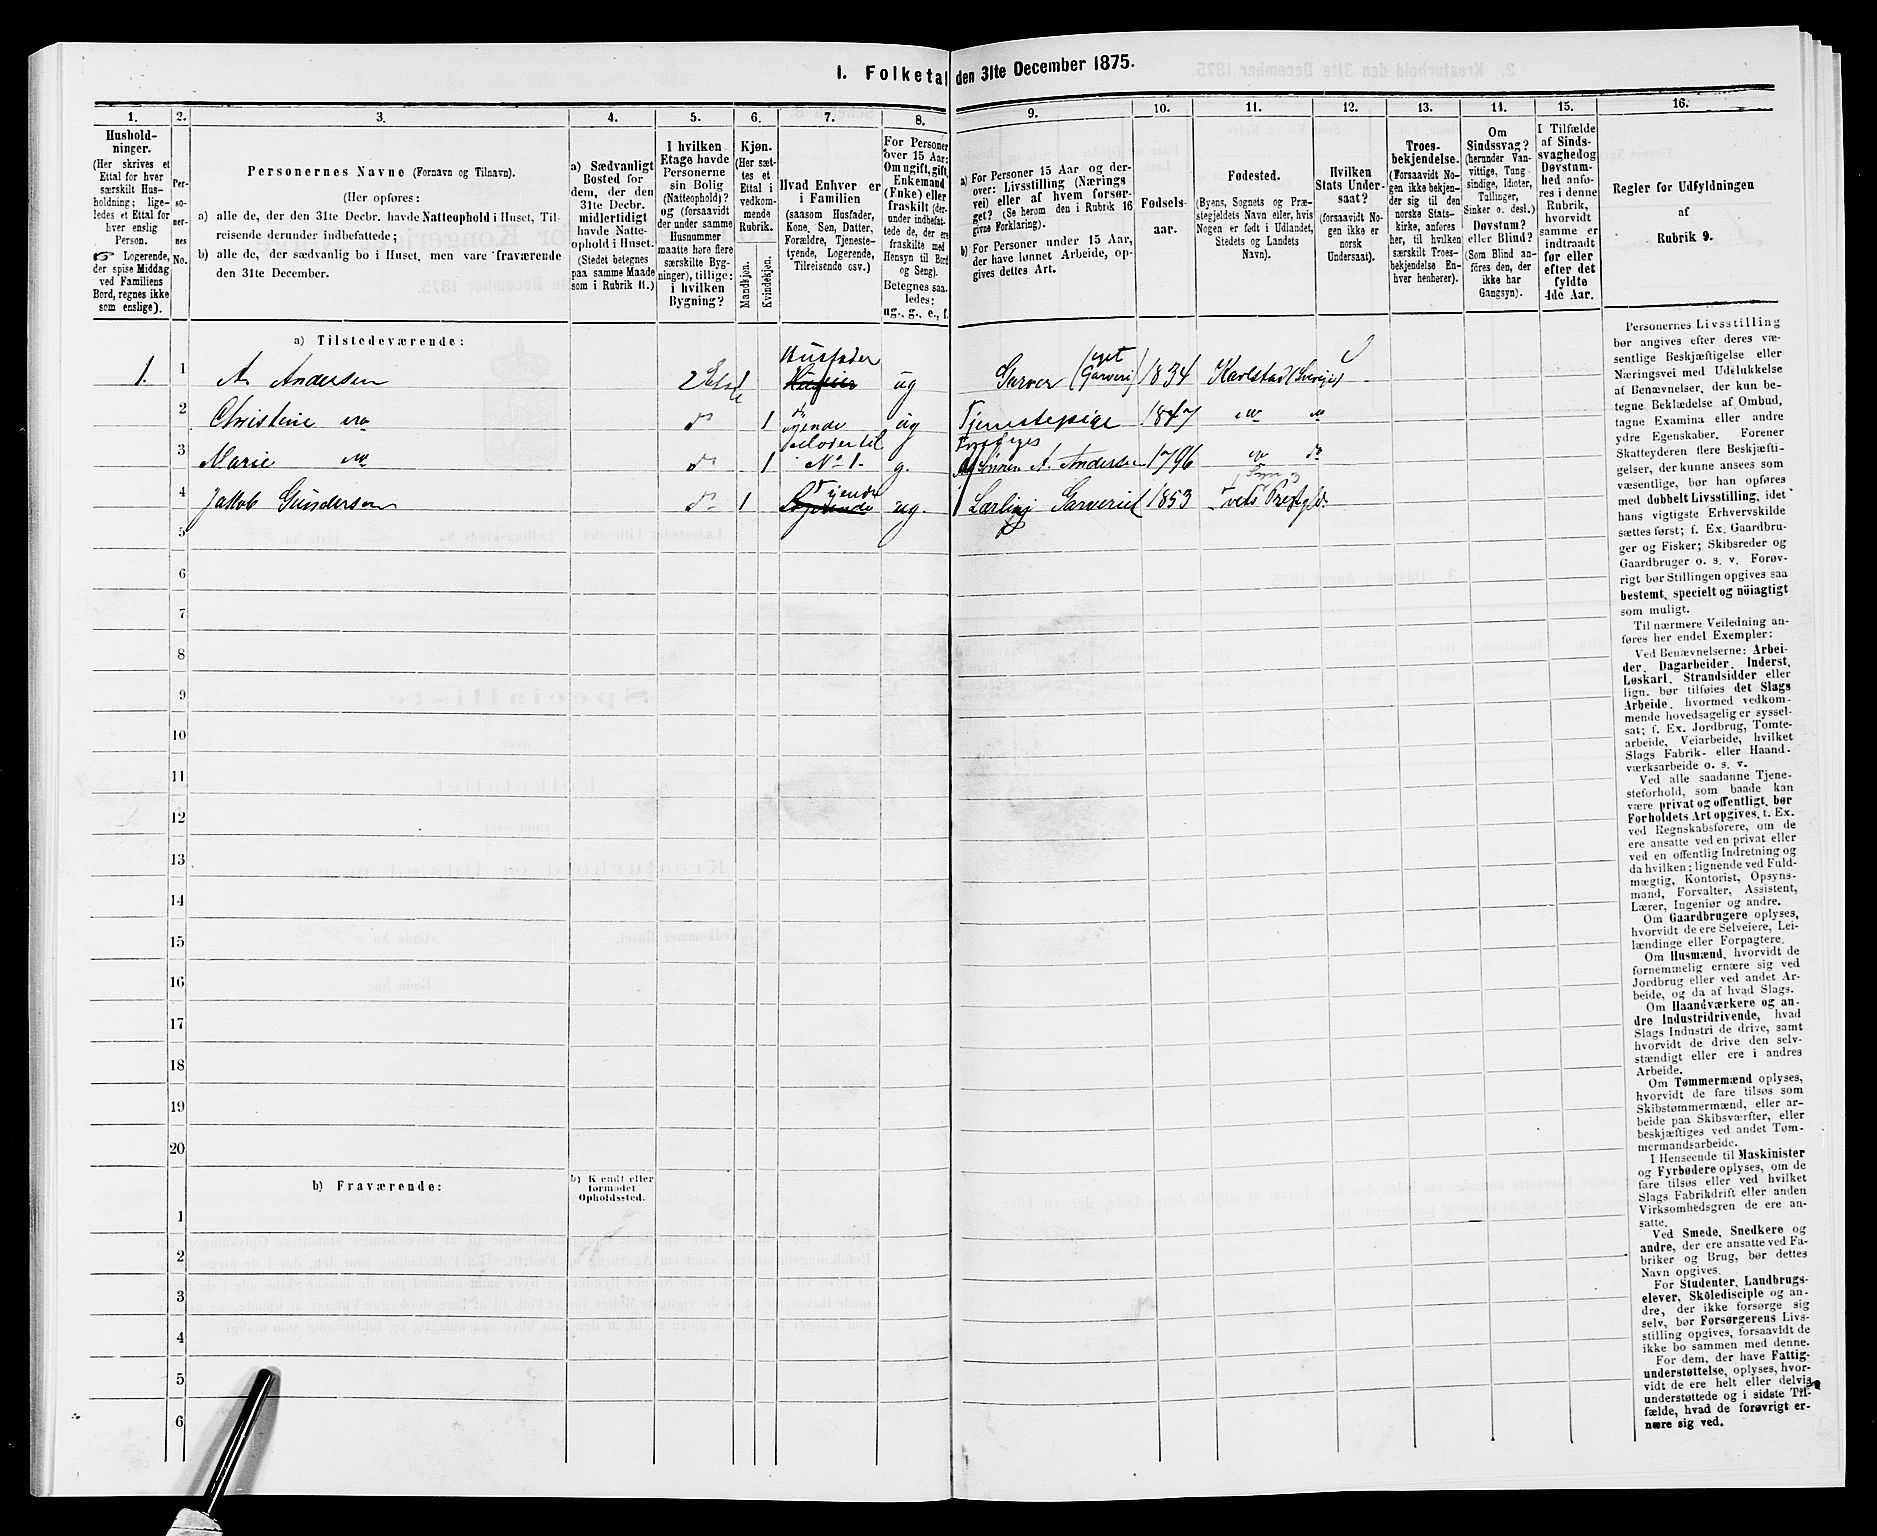 1. Folketal den 31te December 1875.
1.
2.
3.
4.
5.
6.
7.
8.
9.
10.
11.
12.
13.
14.
15.
16.
Hushold-
ninger.
(Her skrives et
Ettal for hver
særskilt Hus-
holdning; lige-
ledes et Ettal for
hver enslig
Person.
☞ Logerende,
der spise Middag
ved Familiens
Bord, regnes ikke
som enslige).
Per-
so-
ner-
nes
No.
Personernes Navne (Fornavn og Tilnavn).
(Her opføres:
a) alle de, der den 31te Decbr. havde Natteophold i Huset, Til-
reisende derunder indbefattede;
b) alle de, der sædvanlig bo i Huset, men vare fraværende
den 31te December.
a) Sædvanligt
Bosted for
dem, der den
31te Decbr.
midlertidigt
havde Natte-
ophold i Huset.
(Stedet betegnes
paa samme Maade
som i Rubrik 11.)
I hvilken
Etage havde
Personerne
sin Bolig
(Natteophold)?
og (forsaavidt
der under samme
Husnummer
maatte høre flere
særskilte Byg-
ninger), tillige:
i hvilken
Bygning?
Kjøn.
(Her sæt-
tes et
Ettal i
vedkom-
mende
Rubrik.
Mandkjøn.
Kvindekjøn.
Hvad Enhver er
i Familien
(saasom Husfader,
Kone, Søn, Datter,
Forældre, Tjeneste-
tyende, Logerende,
Tilreisende osv.)
For Personer
over 15 Aar:
Om ugift, gift,
Enkemand
(Enke) eller
fraskilt (der-
under indbefat-
tede de, der ere
fraskilte med
Hensyn til Bord
og Seng).
Betegnes saa-
ledes:
ug., g., e., f.
a) For Personer 15 Aar og der-
over: Livsstilling (Nærings
vei) eller af hvem forsør-
get? (Se herom den i Rubrik 16
givne Forklaring).
b) For Personer under 15 Aar,
der have lønnet Arbeide, op-
gives dettes Art.
Fødsels-
aar.
Fødested.
(Byens, Sognets og Præ-
stegjeldets Navn eller, hvis
Nogen er født i Udlandet,
Stedets og Landets
Navn).
Hvilken
Stats Under-
saat?
(forsaavidt No-
gen ikke er
norsk
Undersaat).
Troes-
bekjendelse.
(Forsaavidt No-
gen ikke bekjen-
der sig til den
norske Stats-
kirke, anføres
her, til hvilken
særskilt Troes-
bekjendelse En-
hver henhører).
Om
Sindssvag?
(herunder Van-
vittige, Tung
sindige, Idioter,
Tullinger,
Sinker o. desl.)
Døvstum?
eller Blind?
(Som Blind an-
føres den, der
ikke har
Gangsyn).
I Tilfælde
af Sinds-
svaghedog
Døvstum-
hed anfø-
res i denne
Rubrik,
hvorvidt
samme er
indtraadt
før eller
efter det
fyldte
4de Aar.
Regler for Udfyldningen
af
Rubrik 9.
a) Tilstedeværende:
1. 1 A. Andersen 2 Etst 1 Husfader ug Garver (eget Garveri) 1834 Karlstad (Sverige)
2 Christine do do 1 Tyende ug Tjenestepige 1847 do do
3 Marie do do 1 Moder til No 1. g. Forsørges Af Sønnen A. Andersen 1796 do do
4 Jakob Gundersen do 1 Tyende Logerende ug. Lærling Garveriet 1853 Tvets Prestgld.
5
6
7
8
9
10
11
12
13
14
15
16
17
18
19
20
b) Fraværende:
b) Kjendt eller
formodet
Opholdssted.
1
2
3
4
5
6
Personernes Livsstilling
bør angives efter deres væ-
sentlige Beskjæftigelse eller
Næringsvei med Udelukkelse
af Benævnelser, der kun be-
tegne Beklædelse af Ombud,
tagne Examina eller andre
ydre Egenskaber. Forener
Skatteyderen flere Beskjæfti-
gelser, der kunne ansees som
væsentlige, bør han opføres
med dobbelt Livsstilling, idet
hans vigtigste Erhvervskilde
sættes først; f. Ex. Gaardbru-
ger og Fisker; Skibsreder og
Gaardbruger o. s. v. Forøv-
rigt bør Stillingen opgives saa
bestemt, specielt og nøiagtigt
som muligt.
Til nærmere Veiledning an-
føres her endel Exempler:
Ved Benævnelserne: Arbei-
der, Dagarbeider, Inderst,
Løskarl, Strandsidder eller
lign. bør tilføies det Slags
Arbeide, hvormed vedkom-
mende hovedsagelig er syssel-
sat; f. Ex. Jordbrug, Tomte-
arbeide, Veiarbeide, hvilket
Slags Fabrik- eller Haand-
værksarbeide o. s. v.
Ved alle saadanne Tjene-
steforhold, som baade kan
være privat og offentligt, bør
Forholdets Art opgives, t. Ex.
ved Regnskabsførere, om de
ere ansatte ved en privat eller
ved en offentlig Indretning og
da hvilken; lignende ved Fuld-
mægtig, Kontorist, Opsyns-
mand, Forvalter, Assistent,
Lærer, Ingeniør og andre.
Om Gaardbrugere oplyses,
hvorvidt de ere Selveiere, Lei-
lændinge eller Forpagtere.
Om Husmænd, hvorvidt de
fornemmelig ernære sig ved
Jordbrug eller ved andet Ar-
beide, og da af hvad Slags.
Om Haandværkere og an-
dre Industridrivende, hvad
Slags Industri de drive, samt
hvorvidt de drive den selv-
stændigt eller ere i andres
Arbeide.
Om Tømmermænd oplyses,
hvorvidt de fare tilsøs som
Skibstømmermænd, eller ar-
beide paa Skibsværfter, eller
beskjæftiges ved andet Tøm-
mermandsarbeide.
I Henseende til Maskinister
og Fyrbødere oplyses, om de
fare tilsøs eller ved hvilket
Slags Fabrikdrift eller anden
Virksomhedsgren de ere an-
satte.
Ved Smede, Snedkere og
andre, der ere ansatte ved Fa-
briker og Brug, bør dettes
Navn opgives.
For Studenter, Landbrugs-
elever, Skoledisciple og an-
dre, der ikke forsørge sig
selv, bør Forsørgerens Livs-
stilling opgives, forsaavidt de
ikke bo sammen med denne.
For dem, der have Fattig-
understøttelse, oplyses, hvor-
vidt de ere helt eller delvis
understøttede og i sidste Til-
fælde, hvad de forøvrigt er-
nære sig ved.